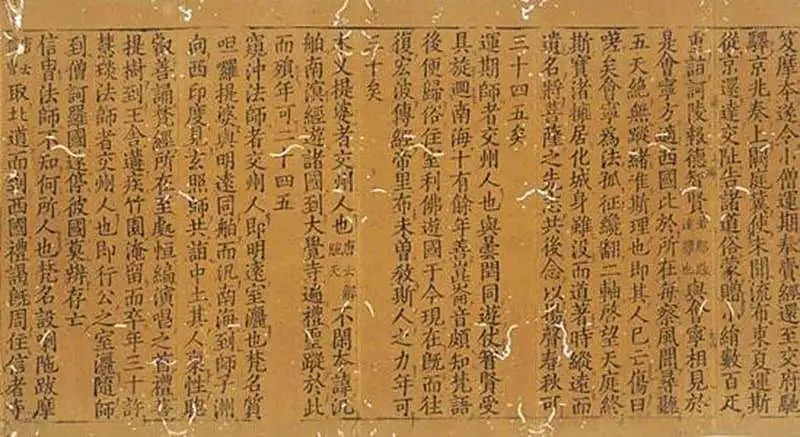 笈摩本遂令小僧運期奉齎經還至交府馳
驛京兆奏上闕庭冀使未聞流布東夏運斯
從京還達交阯告諸道俗蒙贈小絹數百疋
重詣訶陵報德智賢與會寧相見於
是會寧方適西國比於所在每察風聞尋聽
五天絶無蹤緒准斯理也即其人已亡傷曰
嗟矣會寧為法孤征纔翻二軸啓望天庭終
斯寶渚權居化城身雖没而道著時縱遠而
遺名將菩薩之先志共後念以揚聲春秋可
三十四五矣
運期師者交州人也與曇閏同遊仗智賢受
具旋迴南海十有餘年善崑崙音頗知梵語
後便歸俗住至利佛遊國于今現在既而往
復宏波傳經帝里布未曾教斯人之力年可
三十矣
木叉提婆者交州人也唐云解脱天不閑本諱汎
舶南溟經遊諸國到大覺寺遍禮聖蹤於此
而殞年可二十四五
窺沖法師者交州人即明遠室灑也梵名質
呾囉提婆與明遠同舶而汎南海到師子洲
向西印度見玄照師共詣中土其人稟性聰
叡善誦梵經所在至處恒編演唱之首禮菩
提樹到王舍遘疾竹園淹留而卒年三十許
慧琰法師者交州人也即行公之室灑隨師
到僧訶羅國遂停彼國莫辨存亡
信冑法師不知何所人也梵名設喇陁跋摩
取北道而到西國禮謁既周住信者寺